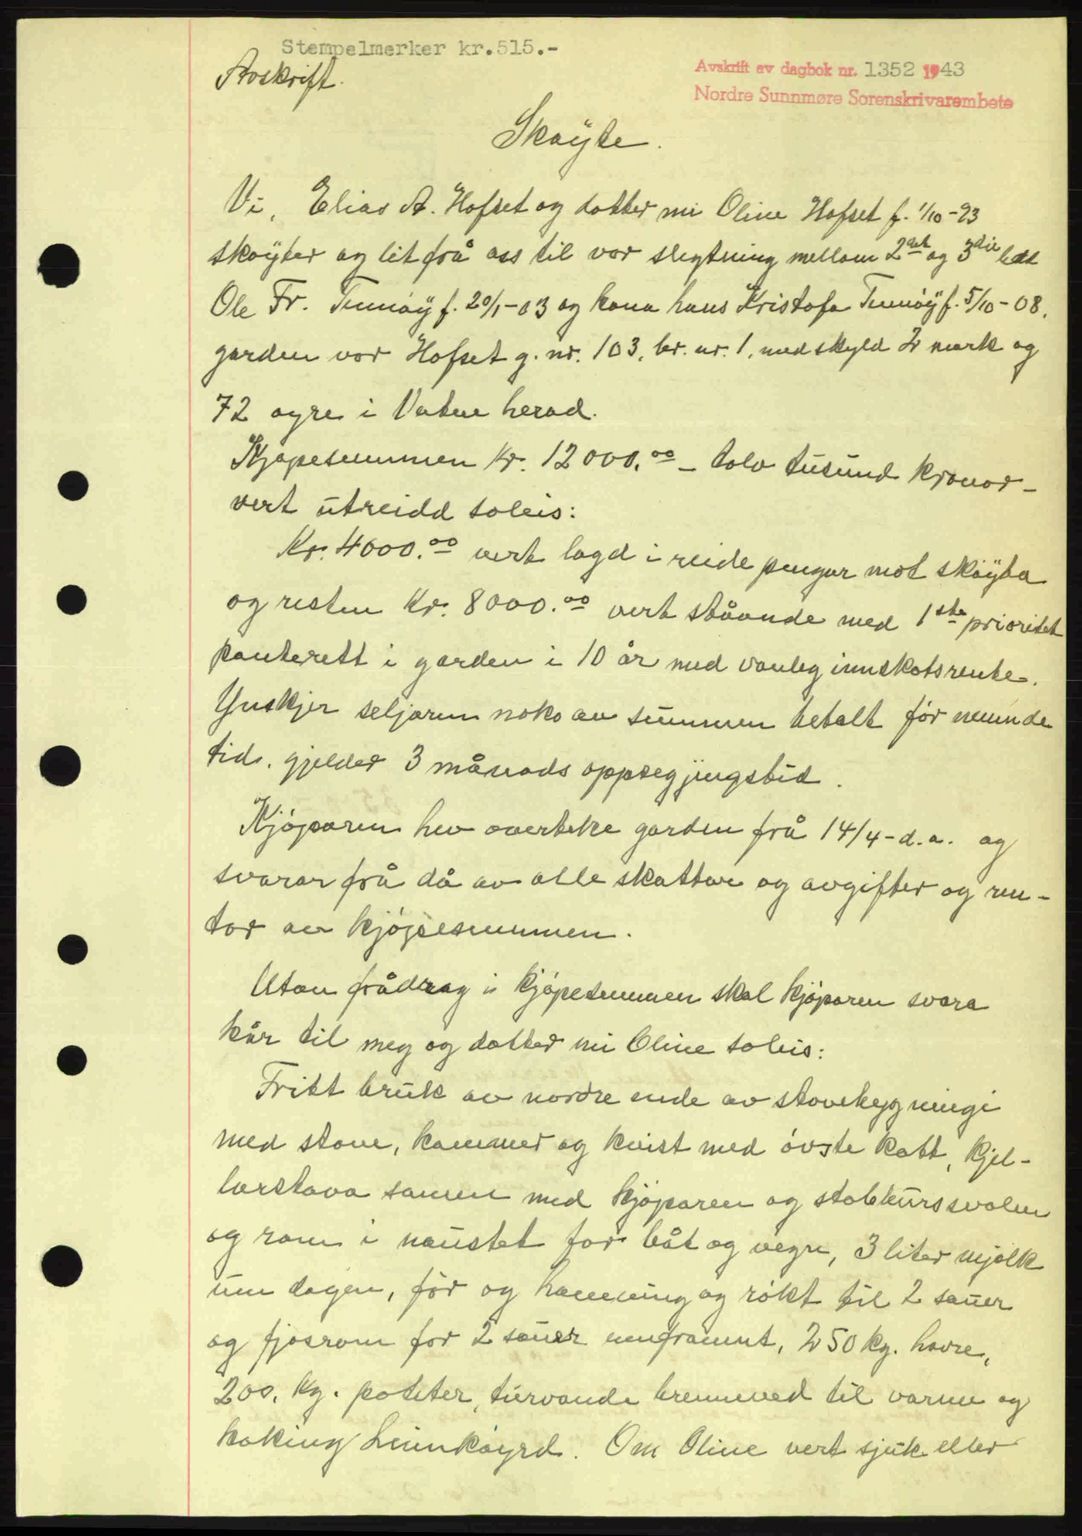 Stempelmerker kr.515.-
Avskrift.
Avskrift av dagbok nr. 1352 1943
Nordre Sunnmøre Sorenskrivarembete
Skøyte.
Vi, Elias A. Hofset og dotter mi Oline Hofset f. 1/10-23
skøyter og let frå oss til vor slegtning mellom 2det og 3die ledd
Ole Fr. Tennøy f. 20/1-03 og kona hans Kristofa Tennøy f. 5/10-08,
garden vor Hofset g. nr. 103, br. nr. 1, med skyld 2 mark og
72 øyre i Vatne herad.
Kjøpesummen kr. 12000.00 - tolv tusund kronor -
vert utreidd soleis:
Kr. 4000.00 vert lagd i reide pengar mot skøyta
og resten kr. 8000.00 vert ståande med 1ste prioritet
panterett i garden i 10 år med vanleg innskotsrente.
Ynskjer seljaren noko av summen betalt før nemnde
tid, gjelder 3 månads oppsegjingstid.
Kjøparen hev overteke garden frå 14/4- d.a. og
svarar frå då av alle skattar og avgifter og ren-
tor av kjøpesummen.
Utan frådrag i kjøpesummen skal kjøparen svara
kår til meg og dotter mi Oline soleis:
Fritt bruk av nordre ende av stovebygningi
med stove, kammer og kvist med øvste kott, kjel-
larstova samen med kjøparen og stabbursvolen
og rom i naustet for båt og vegn, 3 liter mjølk
um dagen, fór og hamning og røkt til 2 sauer
og fjøsrom for 2 sauer umframt, 250 kg. havre,
200, kg. poteter, turvande brenneved til varme og
koking heimkøyrd. Om Oline vert sjuk eller